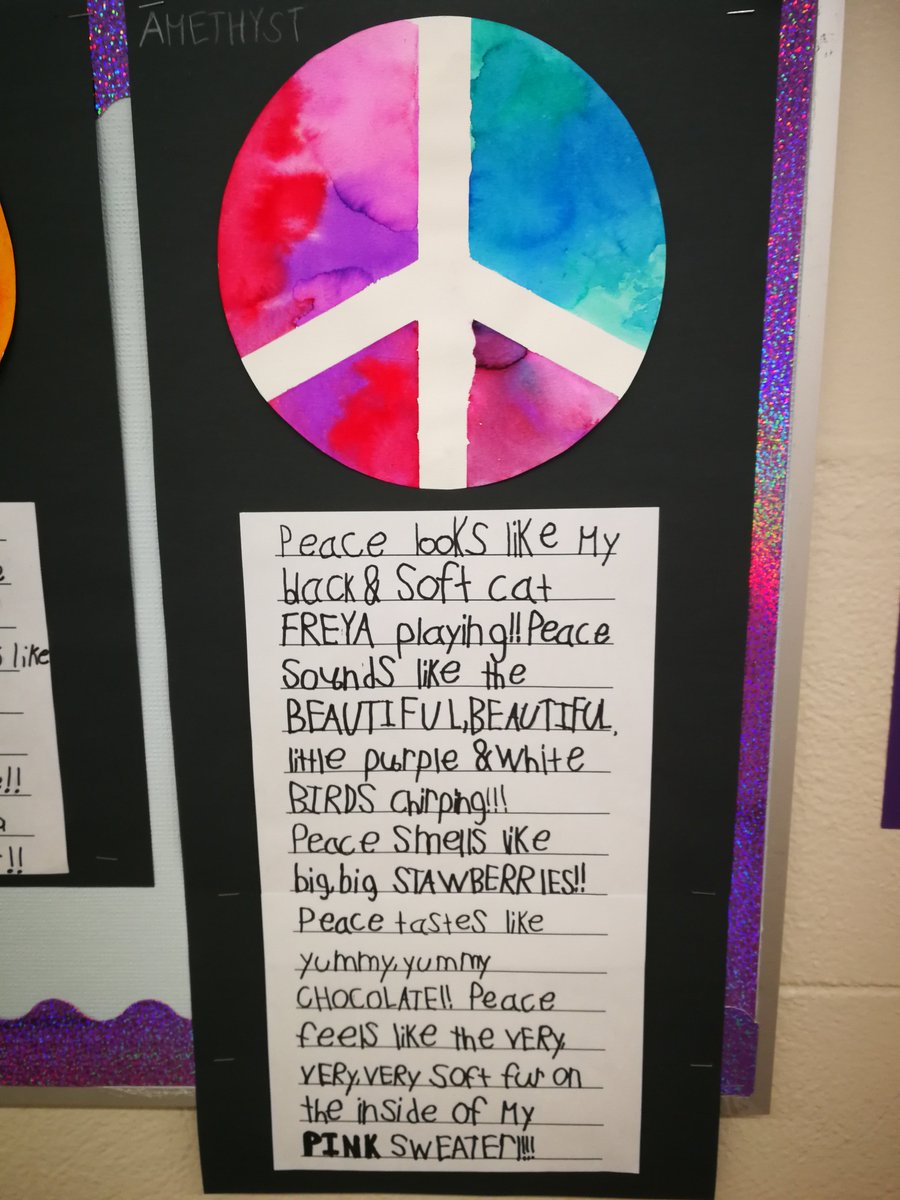 AMETHYST
Peace looks like My
black & Soft cat
FREYA playing!! Peace
Sounds like the
BEAUTIFUL, BEAUTIFUL,
little purple & white
BIRDS chirping!!!
Peace Smells like
big, big STAWBERRIES!!
Peace tastes like
yummy, yummy
CHOCOLATE!! Peace
feels like the VERY,
VERY, VERY soft fur on
the inside of My
PINK SWEATER!!!!
like
!!
!!